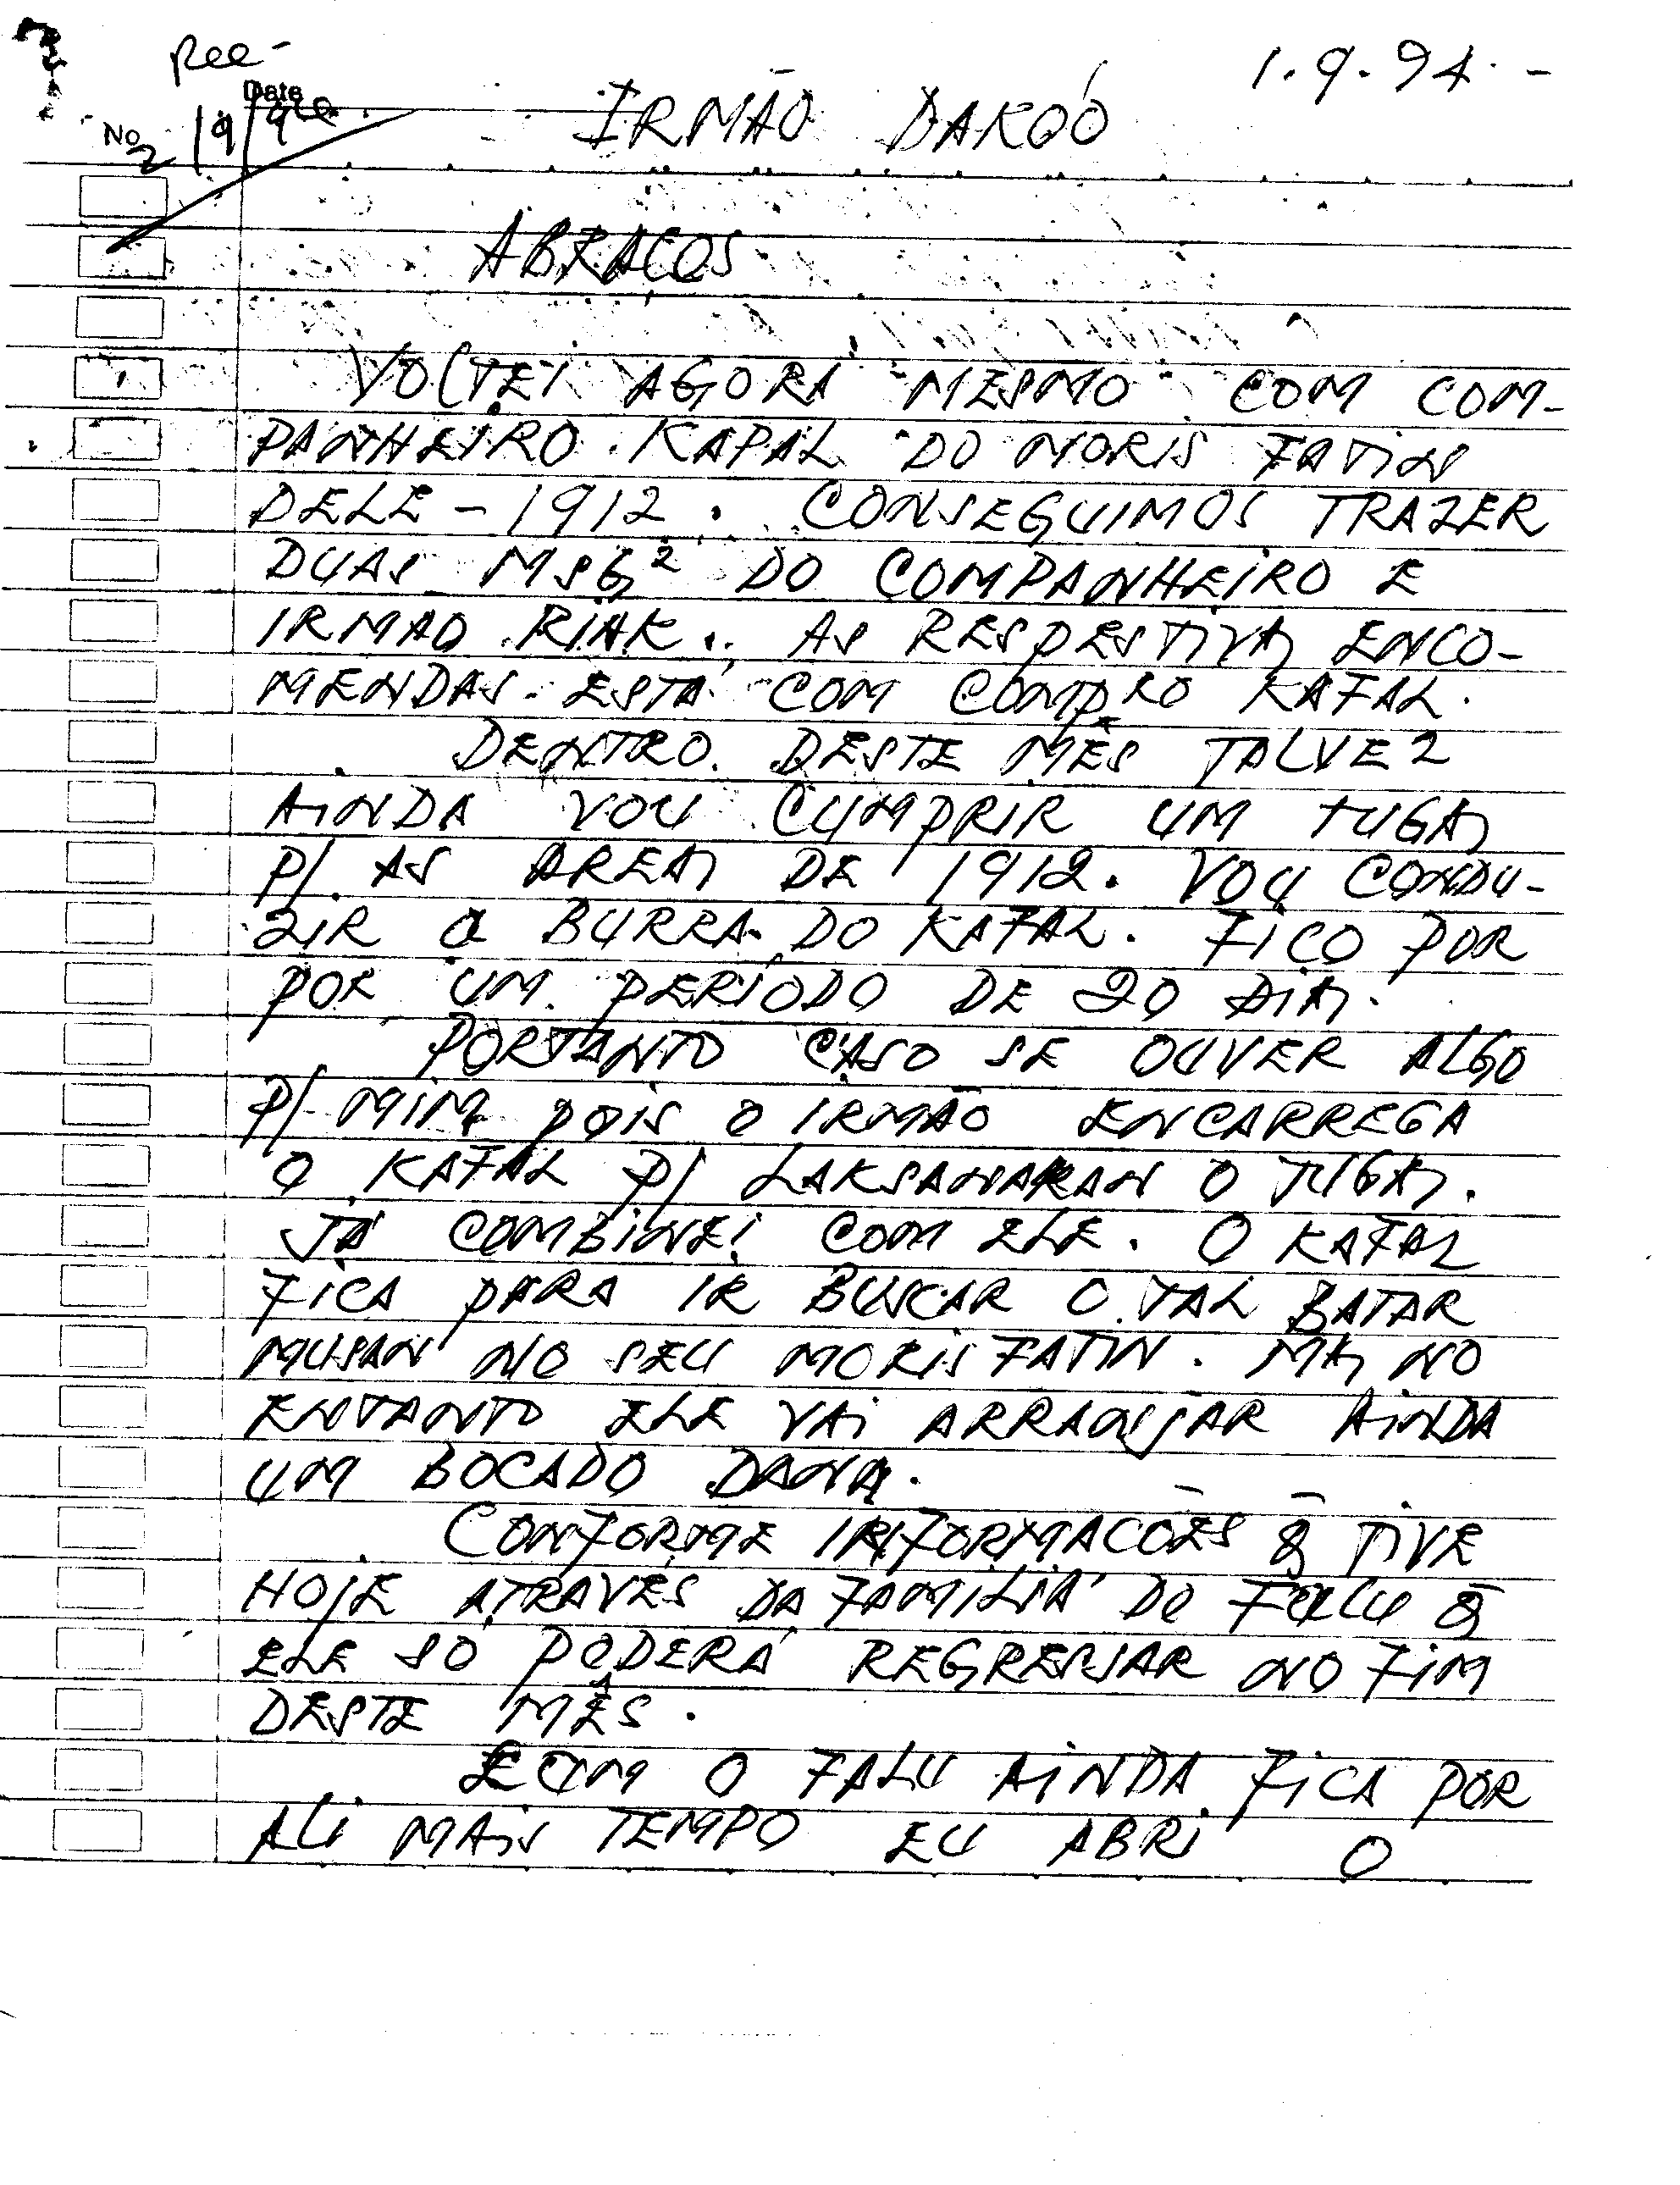 Rec-
1.9.94.-
Date
No
2/9/94
IRMÃO DAKOÓ
ABRAÇOS
VOLTEI AGORA MESMO COM COM-
PANHEIRO KAPAL DO MORIS FATIN
DELE - 1912. CONSEGUIMOS TRAZER
DUAS MSG² DO COMPANHEIRO E
IRMÃO RIAK. AS RESPESTIVAS ENCO-
MENDAS ESTÁ COM COMPRO KAFAL.
DENTRO DESTE MÊS TALVEZ
AINDA VOU CUMPRIR UM TUGAS
P/. AS AREAS DE 1912. VOU CONDU-
ZIR A BURRA DO KAFAL. FICO POR
POR UM PERÍODO DE 20 DIAS.
PORTANTO CASO SE OUVER ALGO
P/ MIM POIS O IRMÃO ENCARREGA
O KAFAL P/ LAKSANAKAN O TUGAS.
JÁ COMBINEI COM ELE. O KAFAL
FICA PARA IR BUSCAR O TAL BATAR
MUSAN NO SEU MORIS FATIN. MAS NO
ENTANTO ELE VAI ARRANJAR AINDA
UM BOCADO DANA.
CONFORME INFORMAÇÕES Q̃ TIVE
HOJE ATRAVÉS DA FAMÍLIA DO FALU Q̃
ELE SÓ PODERÁ REGRESSAR NO FIM
DESTE MÊS.
E CUM O FALU AINDA FICA POR
ALI MAIS TEMPO EU ABRI O